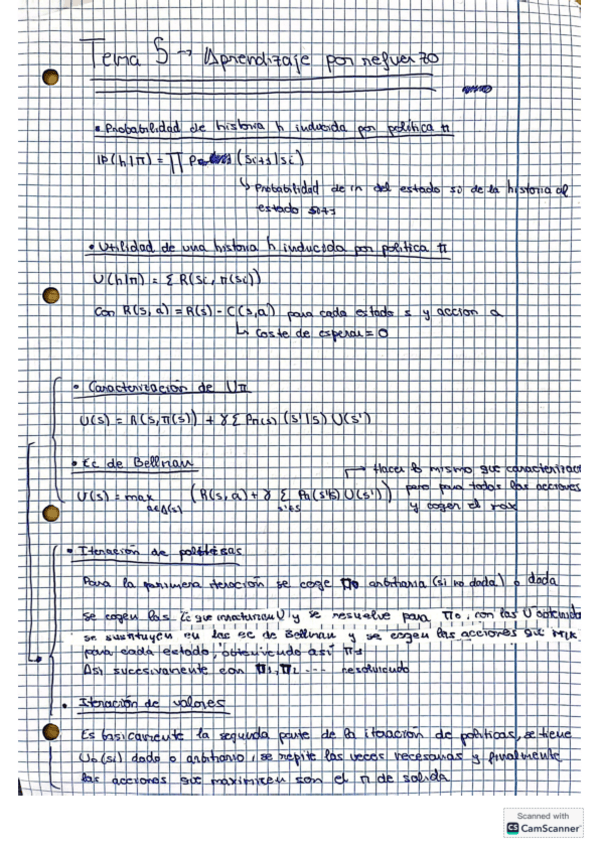 Tema 5 → Aprendizaje por refuerzo
• Probabilidad de historia h inducida por política π
P(h|π) = ∏ P (si+1|si)
↳ Probabilidad de ir del estado si de la historia al
estado si+1
• Utilidad de una historia h inducida por política π
U(h|π) = Σ R(si, π(si))
Con R(s,a) = R(s) - C(s,a) para cada estado s y acción a
↳ Coste de esperar = 0
• Caracterización de Uπ
U(s) = R(s,π(s)) + γ Σ Pπ(s) (s'|s) U(s')
• Ec de Bellman
→ Hacer lo mismo que caracterizac
U(s) = max a∈A(s) (R(s,a) + γ Σ s'∈S Pa(s'|s) U(s')) pero para todas las acciones
y coger el max
• Iteración de políticas
Para la primera iteración se coge π0 arbitraria (si no dada) o dada
se cogen las Ec que caracterizan U y se resuelve para π0, con las U obtenidas
se sustituyen en las ec de Bellman y se cogen las acciones que max
para cada estado, obteniendo así π1
Así sucesivamente con π1, π2 ... resolviendo
• Iteración de valores
Es básicamente la segunda parte de la iteración de políticas, se tiene
U0(si) dado o arbitrario, se repite las veces necesarias y finalmente
las acciones que maximicen son el π de salida
Scanned with
CS CamScanner